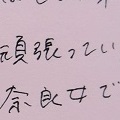 頑張ってい
奈良女で